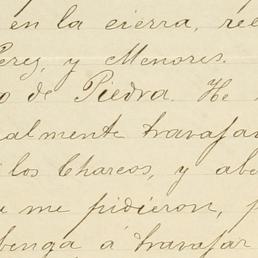 en la cierra, ree
Perez, y Menores.
o de Piedra. He
almente travajar
los Charcos, y abe
e me pidieron, p
benga á travajar